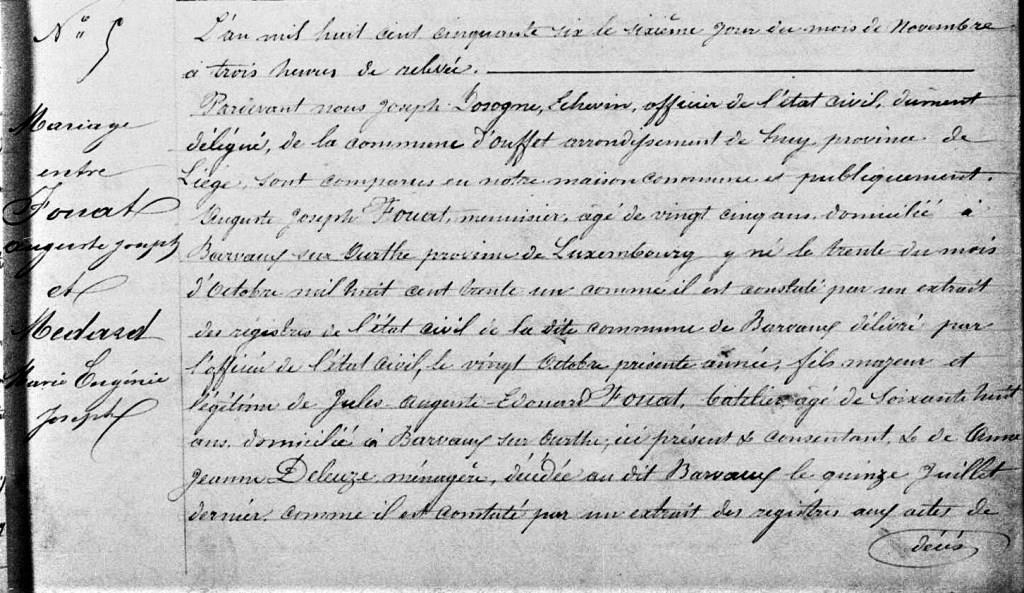 N° 5
Mariage
entre
Fouat
Auguste Joseph
et
Medard
Marie Eugénie
Joseph
L'an mil huit cent cinquante six le sixième jour du mois de Novembre
à trois heures de relevée.
Pardevant nous Joseph Dosogne, Echevin, officier de l'état civil, dument
délégué, de la commune d'ouffet arrondissement de huy province de
Liège, sont comparus en notre maison commune et publiquement.
Auguste Joseph Fouat, menuisier, agé de vingt cinq ans, domicilié à
Barvaux sur Ourthe province de Luxembourg y né le trente du mois
d'Octobre mil huit cent trente un comme il est constaté par un extrait
des régistres de l'état civil de la dite commune de Barvaux délivré par
l'officier de l'état civil, le vingt Octobre présente année, fils majeur et
légitime de Jules Auguste Edouard Fouat, batelier agé de Soixante huit
ans, domicilié à Barvaux sur Ourthe, ici présent & consentant, & de Anne
Jeanne Deleuze ménagère, décédée au dit Barvaux le quinze Juillet
dernier, comme il est constaté par un extrait des registres aux actes de
décès